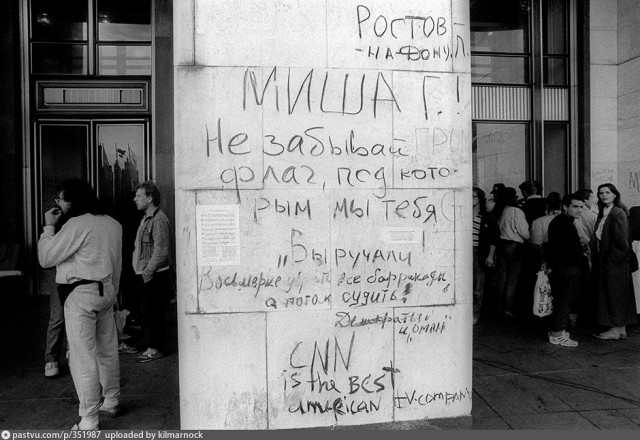 РОСТОВ-
-НА-ДОНУ.
МИША Г.!
Не забывай
флаг, под кото-
рым мы тебя
"выручали!
Восьмерке все баррикады
а потом судить!
Демократы
CNN
is the BEST
american TV-company
pastvu.com/p/351987 uploaded by kilmarnock